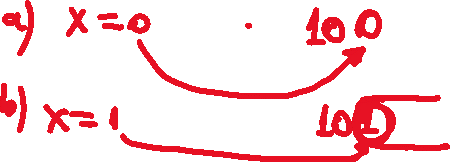 a) x=0 . 100
b) x=1 101